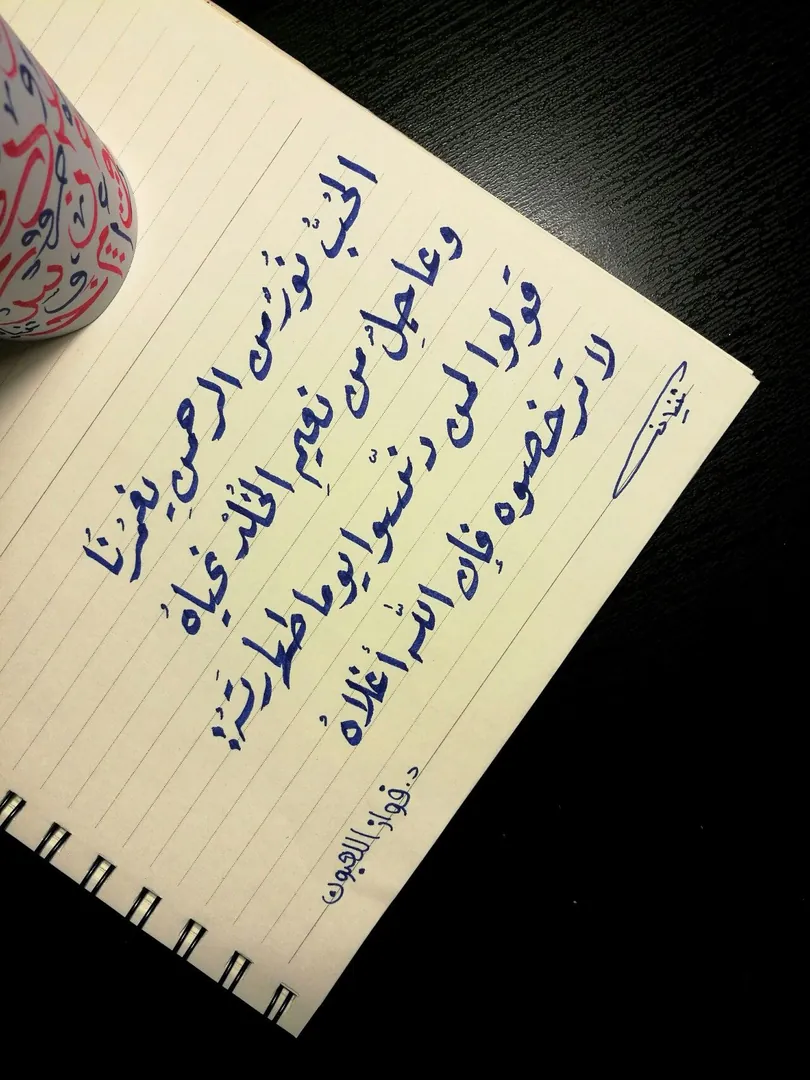 الحُبُّ نُورٌ من الرحمنِ يغمُرُنَا
وعاجِلٌ من نعيمِ الخُلْدِ نحياهُ
قولوا لمن دنّسوا يوما طهارتَهُ:
لا تُرخصوه فإن اللّه أغلاهُ
د. فواز اللعبون